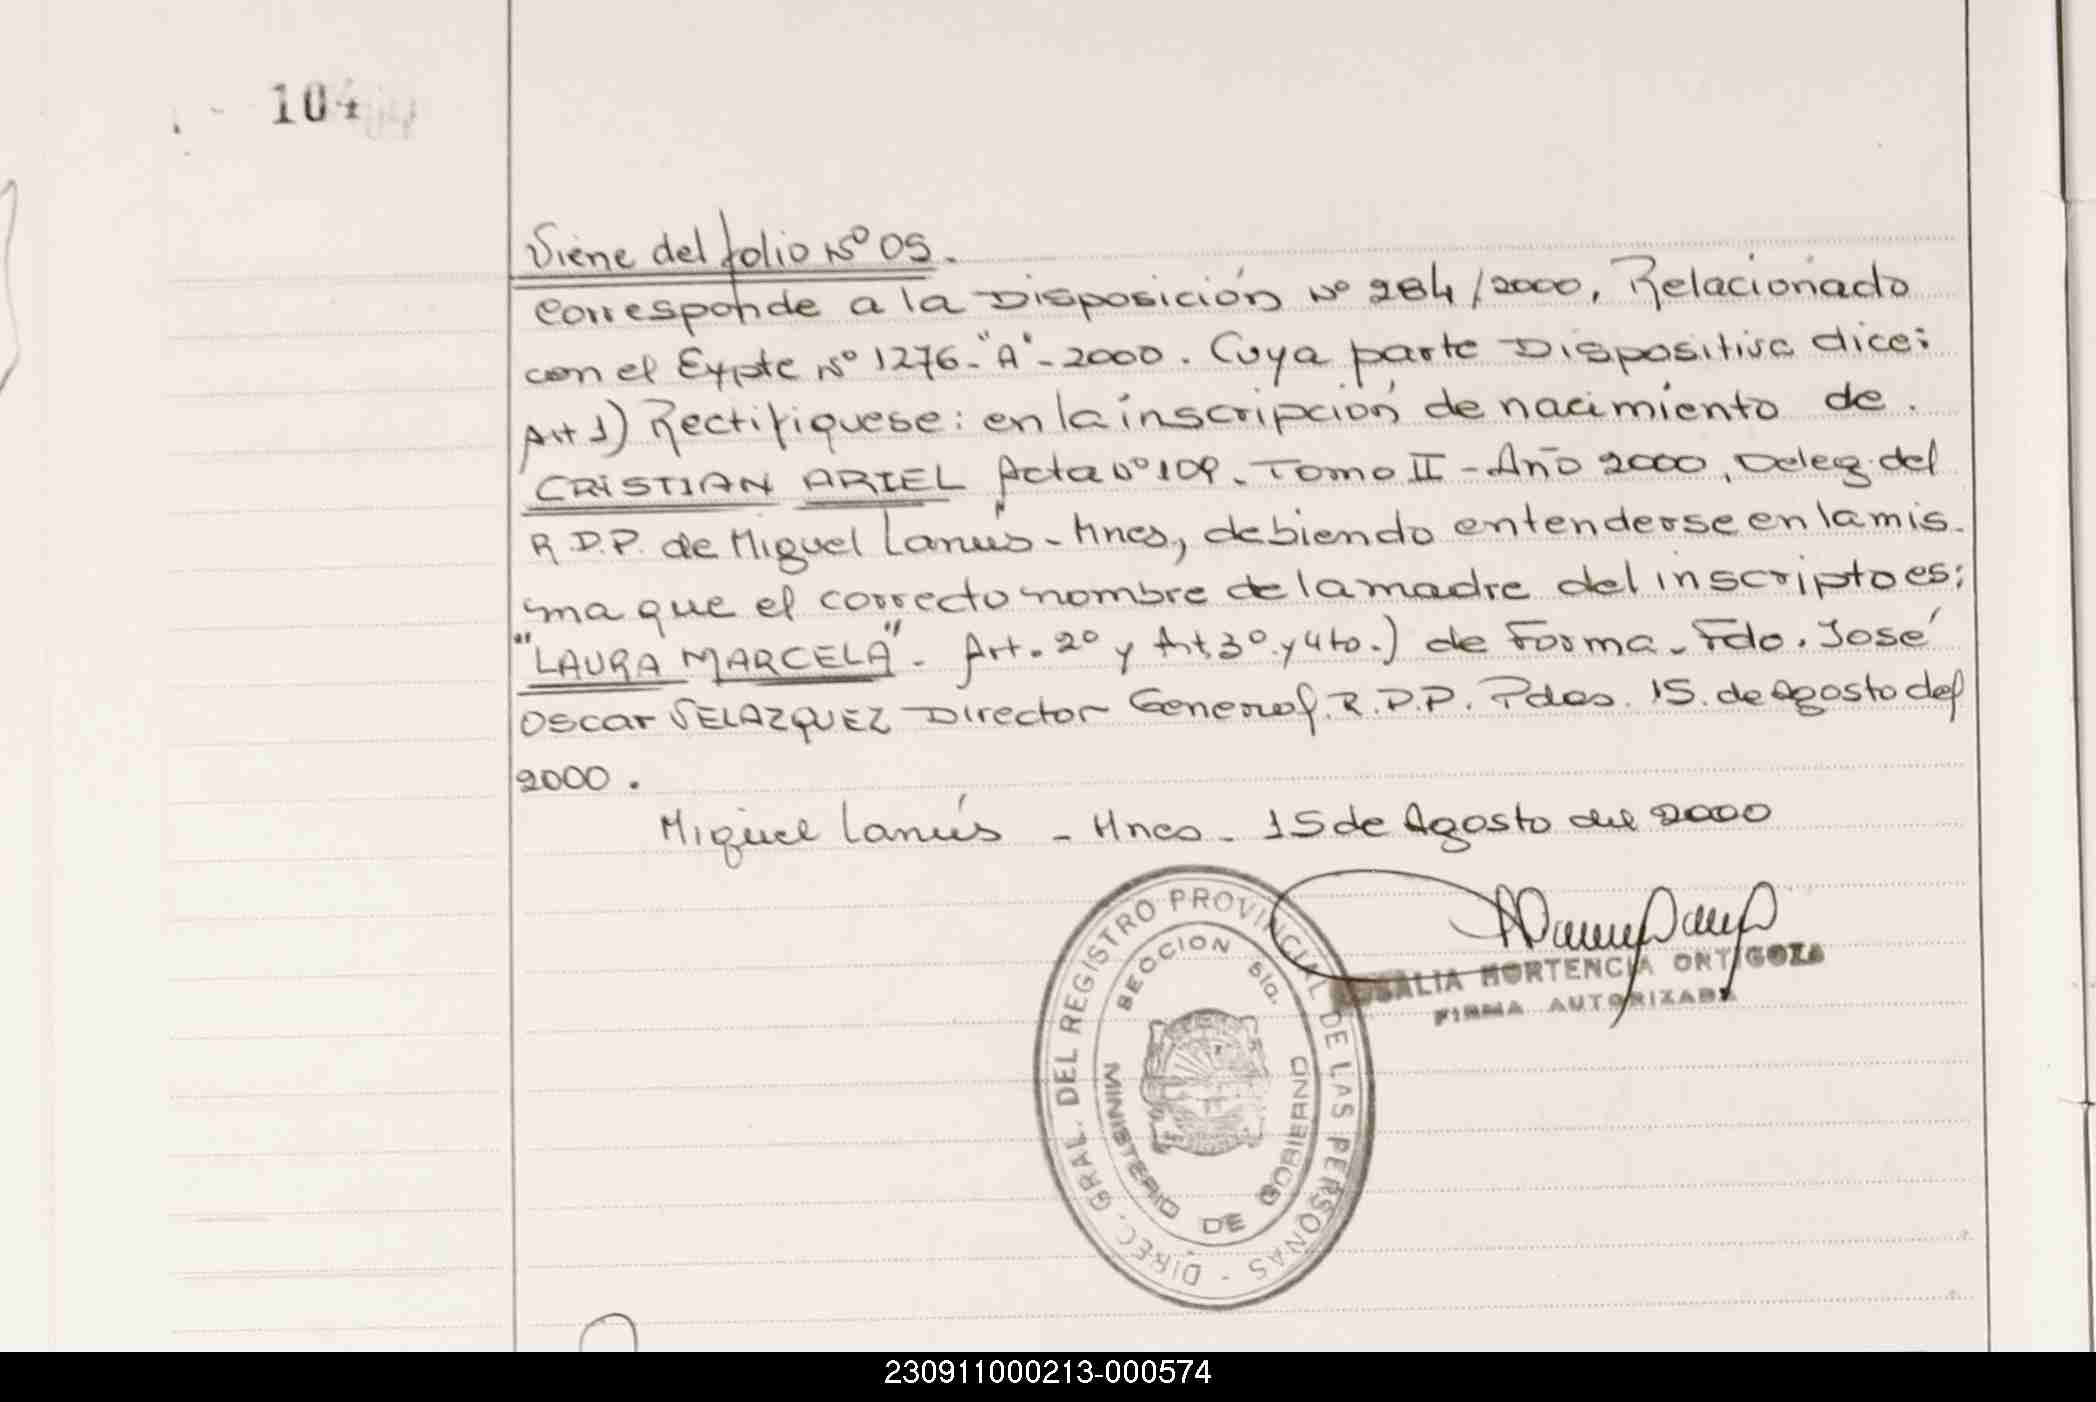 104
Viene del folio Nº 05.
Corresponde a la Disposición Nº 284/2000, Relacionado
con el Expte Nº 1276-"A"-2000. Cuya parte Dispositiva dice:
Art 1) Rectifiquese: en la inscripción de nacimiento de.
CRISTIAN ARIEL Acta Nº 109. Tomo II - Año 2000, Deleg. del
R.D.P. de Miguel Lanús - Mnes, debiendo entenderse en la mis-
ma que el correcto nombre de la madre del inscripto es:
"LAURA MARCELA". Art. 2º y Art, 3º. y 4to.) de Forma. Fdo. José
Oscar VELAZQUEZ Director General. R.D.P. Pdas. 15. de Agosto del
2000.
Miguel Lanús - Mnes - 15 de Agosto del 2000
ROSALIA HORTENCIA ORTIGOZA
FIRMA AUTORIZADA
DIREC. GRAL. DEL REGISTRO PROVINCIAL DE LAS PERSONAS -
SECCION 5ta.
MINISTERIO DE GOBIERNO
230911000213-000574